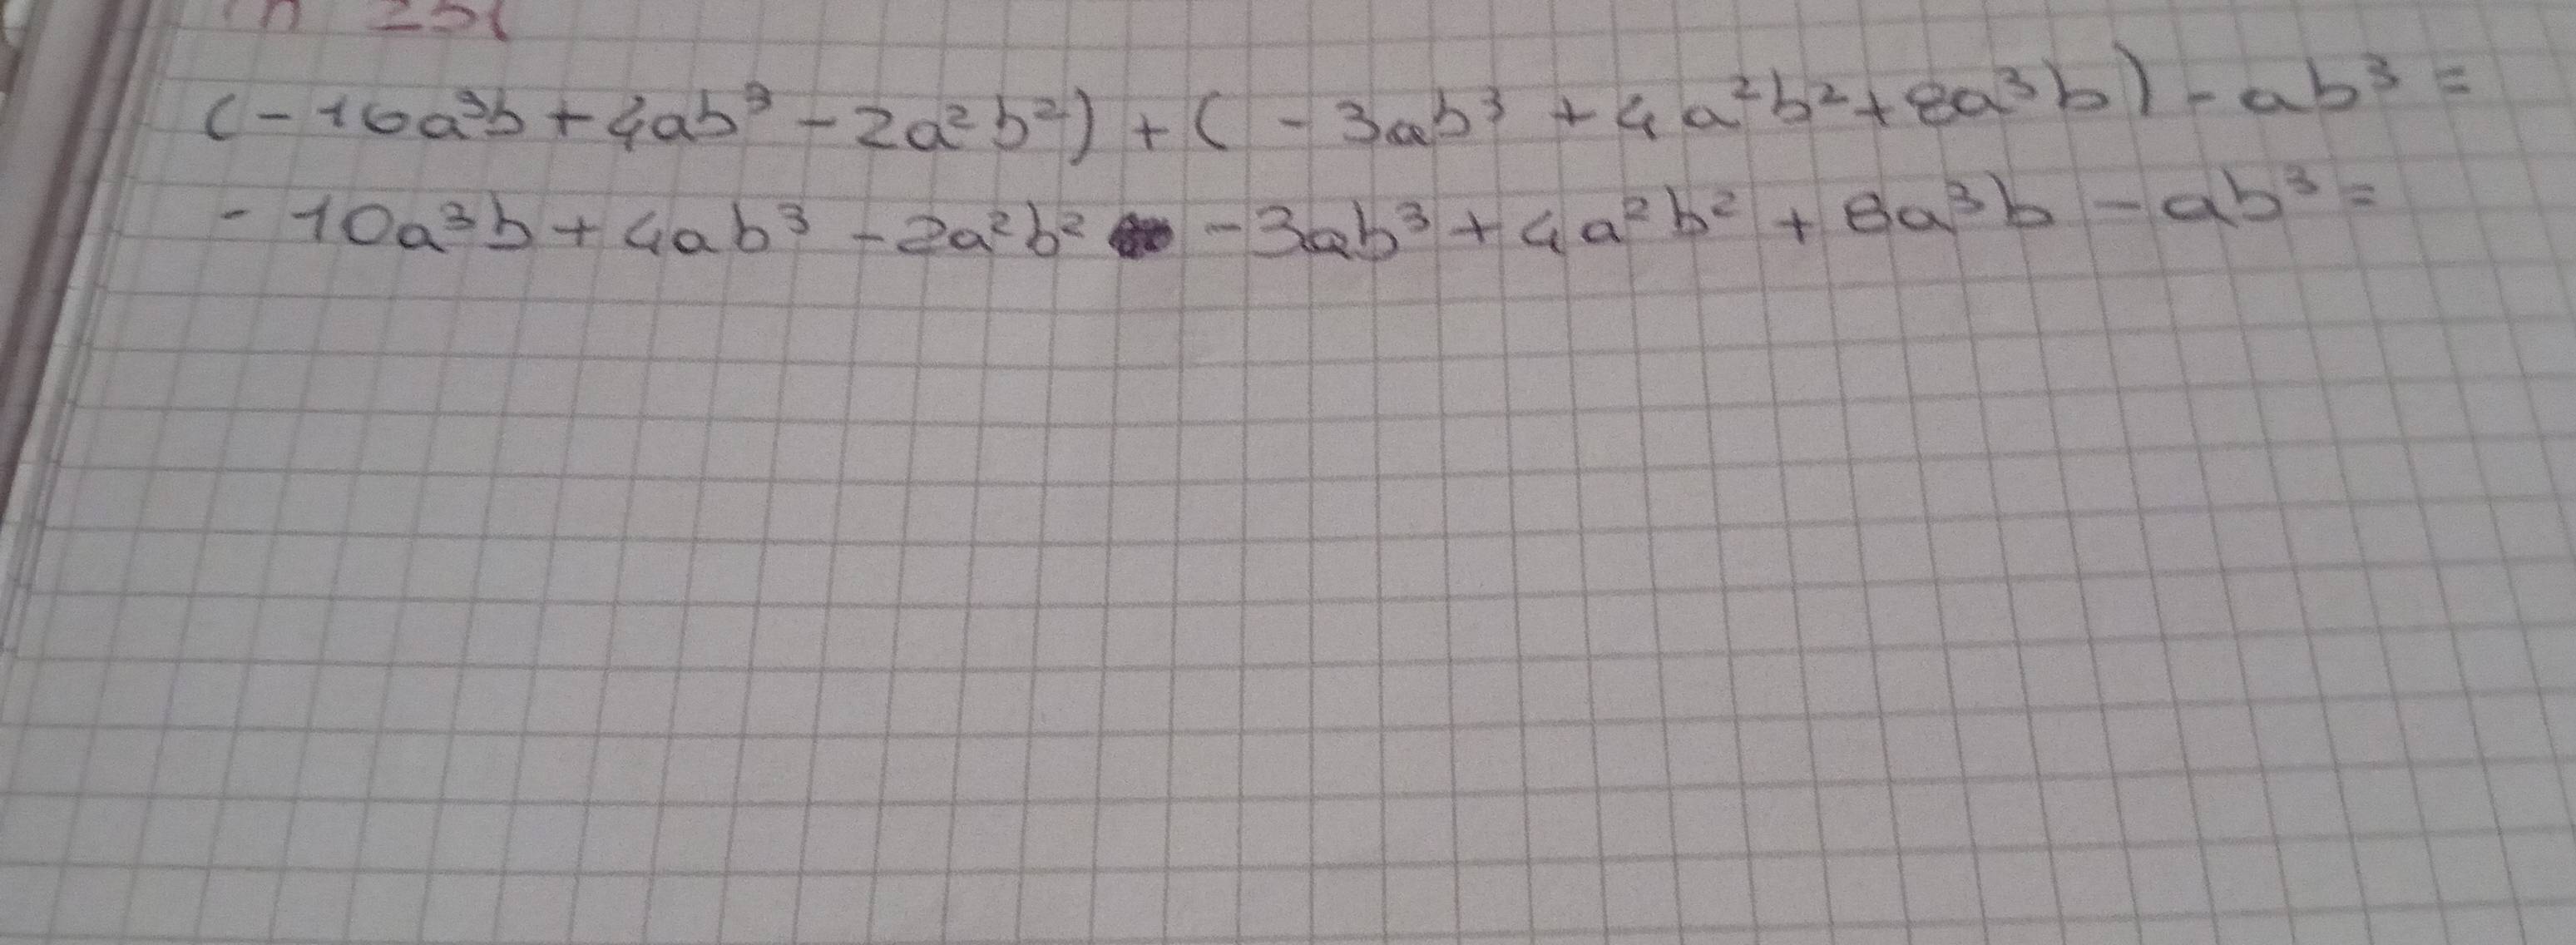 (-10a³b + 4ab³ - 2a²b²) + ( - 3ab³ + 4a²b² + 8a³b) - ab³ =
- 10a³b + 4ab³ - 2a²b² - 3ab³ + 4a²b² + 8a³b - ab³ =